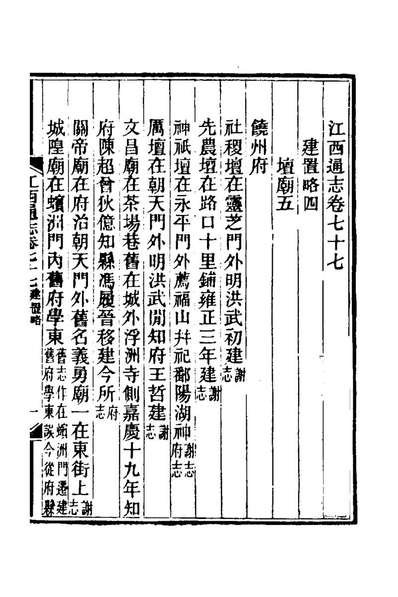 江西通志卷七十七
建置略四
壇廟五
饒州府
社稷壇在靈芝門外明洪武初建謝志
先農壇在路口十里鋪雍正三年建謝志
神祇壇在永平門外薦福山幷祀鄱陽湖神府志
厲壇在朝天門外明洪武閒知府王哲建謝志
文昌廟在茶場巷舊在城外浮洲寺側嘉慶十九年知
府陳超曾狄億知縣馮履晉移建今所府志
關帝廟在府治朝天門外舊名義勇廟一在東街上謝志
城隍廟在蠙洲門內舊府學東舊志作在蠙洲門遷建舊府學東誤今從府縣
江西通志卷七十七 建置略 一